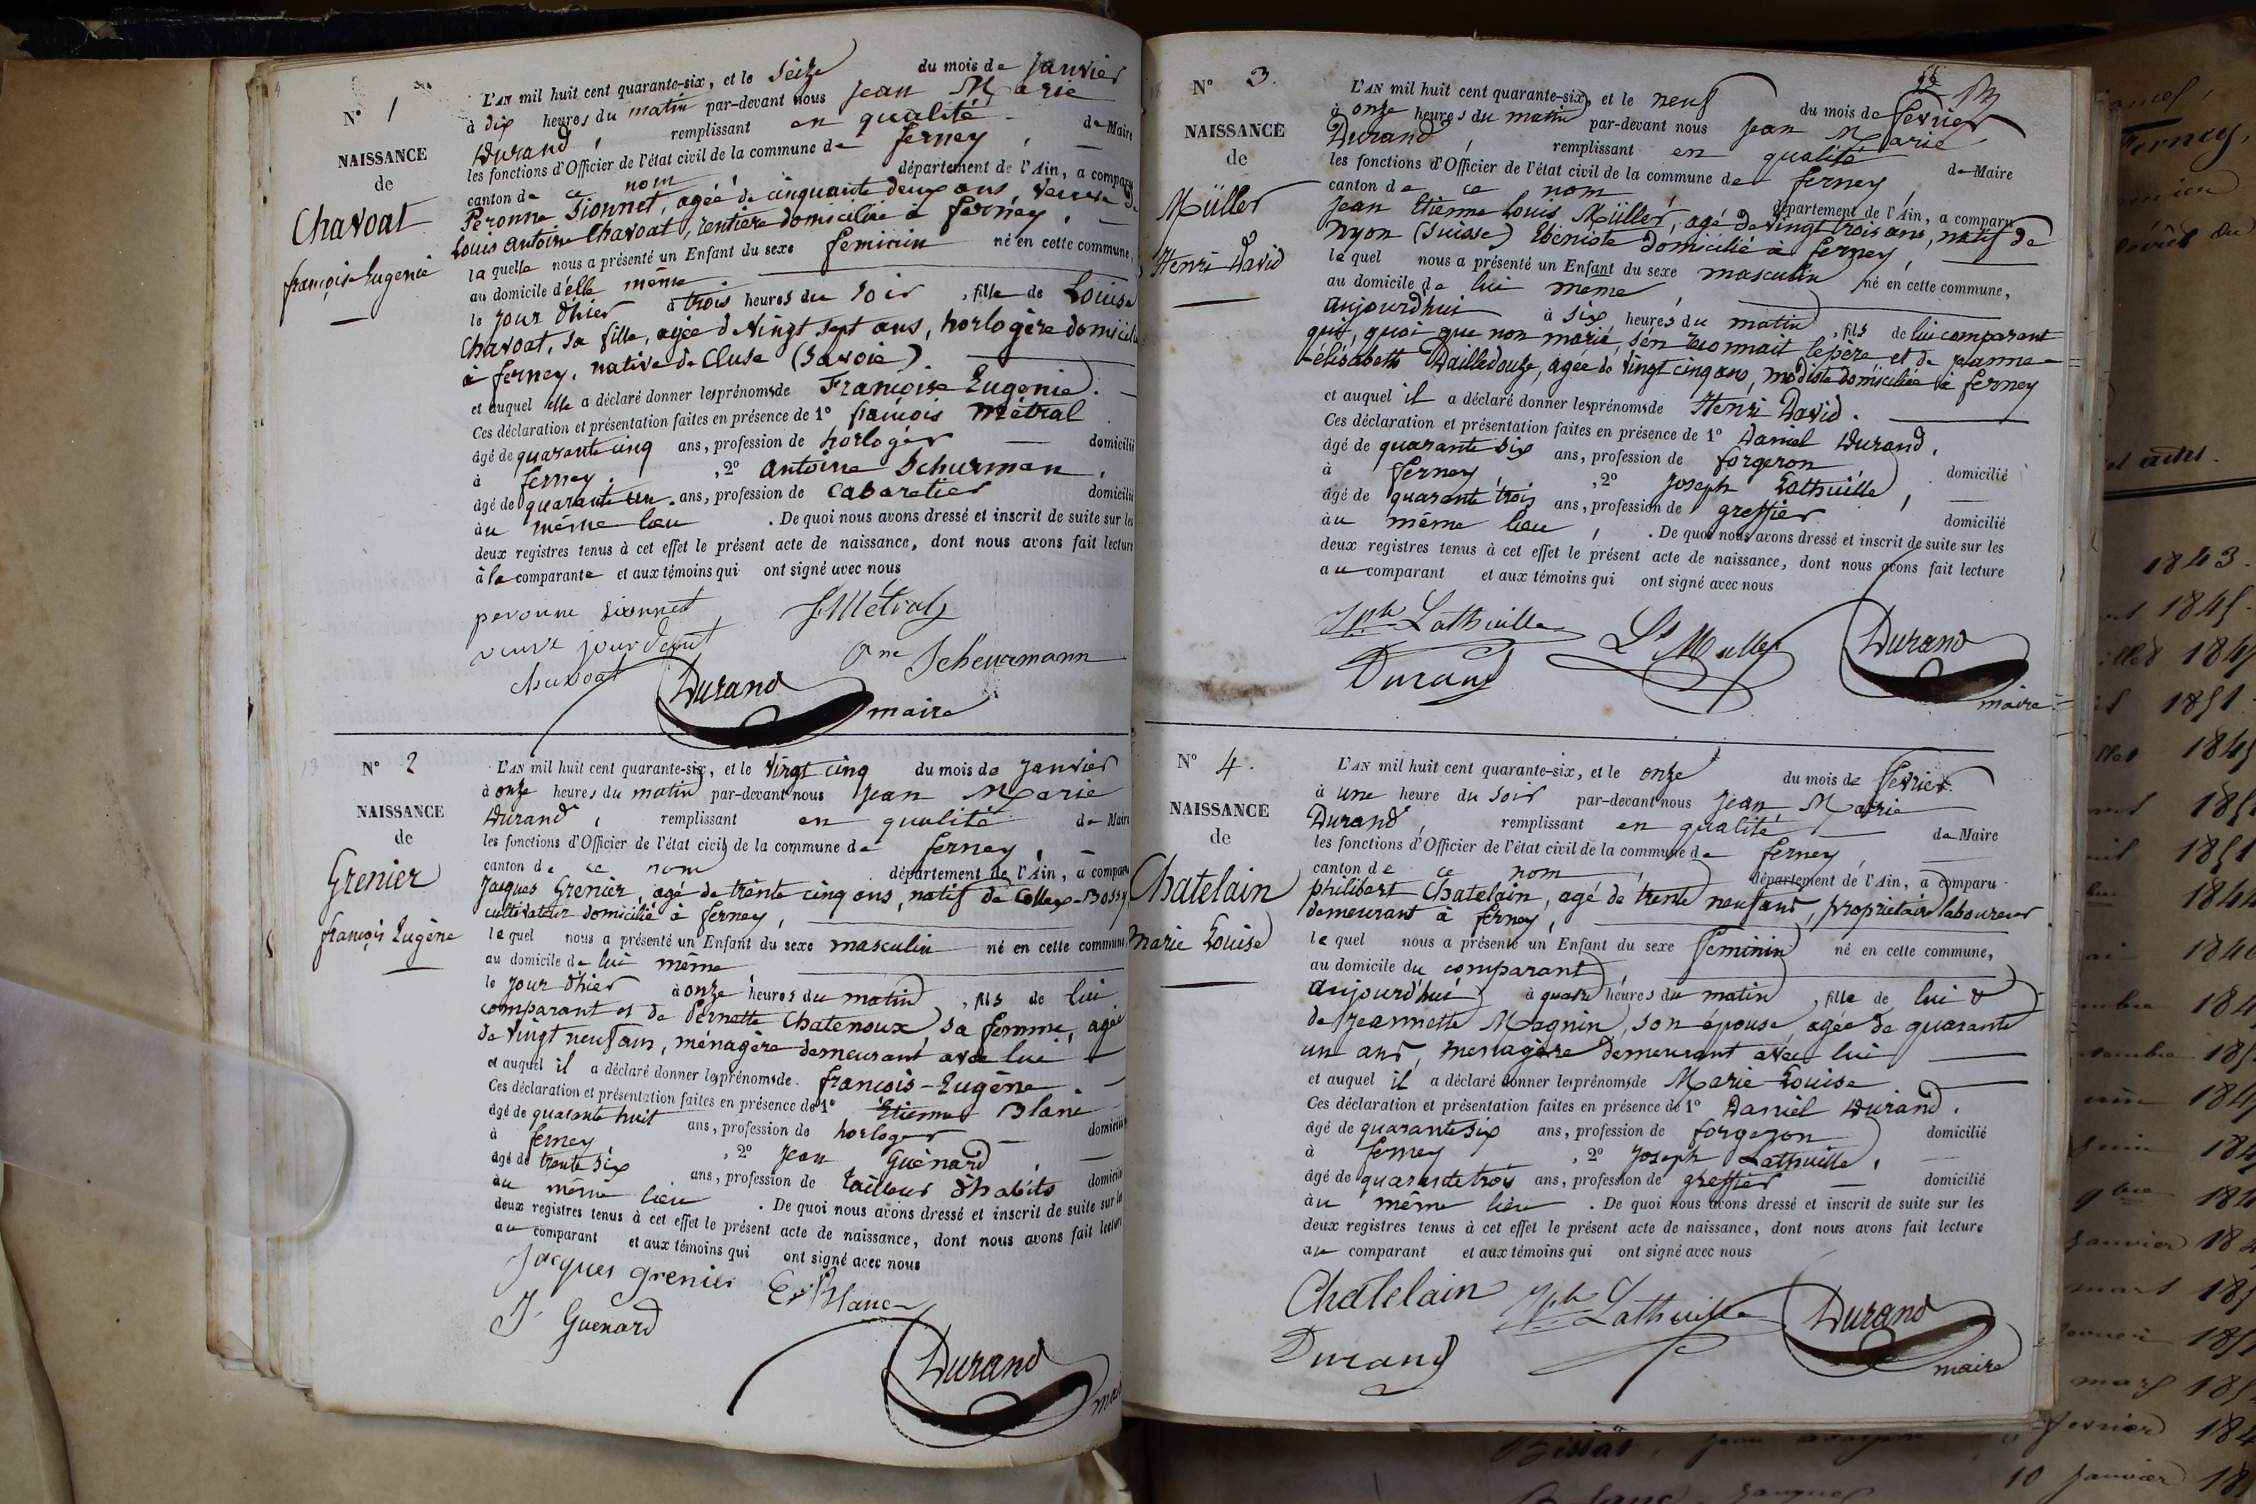 N° 1
NAISSANCE
de
Chavoat
françoise Eugenie
L'AN mil huit cent quarante-six, et le Seize du mois de Janvier
à dix heures du matin par-devant nous Jean Marie
Durand, remplissant en qualité de Maire
les fonctions d'Officier de l'état civil de la commune de ferney,
canton de ce nom département de l'Ain, a comparu
Péronne Sionnet, agée de cinquante deux ans, Veuve de
Louis Antoine Chavoat, rentière domiciliée à ferney,
laquelle nous a présenté un Enfant du sexe feminin né en cette commune,
au domicile d'elle même
le jour d'hier à trois heures du soir, fille de Louise
Chavoat, sa fille, agée d Vingt sept ans, horlogère domiciliée
à ferney, native de Cluse (Savoie)
et auquel elle a déclaré donner les prénoms de Françoise Eugenie.
Ces déclaration et présentation faites en présence de 1° françois Métral
âgé de quarante cinq ans, profession de horloger domicilié
à ferney, 2° Antoine Schurman,
âgé de quarante un ans, profession de Cabaretier domicilié
au même lieu. De quoi nous avons dressé et inscrit de suite sur les
deux registres tenus à cet effet le présent acte de naissance, dont nous avons fait lecture
à la comparante et aux témoins qui ont signé avec nous
peronne Sionnet
fMétral
veuve jour defunt
Ane Scheurmann
chavoat
Durand
maire
N° 2
NAISSANCE
de
Grenier
françois Eugène
L'AN mil huit cent quarante-six, et le Vingt cinq du mois de Janvier
à onze heures du matin par-devant nous Jean Marie
Durand, remplissant en qualité de Maire
les fonctions d'Officier de l'état civil de la commune de ferney,
canton de ce nom département de l'Ain, a comparu
Jacques Grenier, agé de trente cinq ans, natif de Collex-Bossy
cultivateur domicilié à ferney,
lequel nous a présenté un Enfant du sexe masculin né en cette commune,
au domicile de lui même
le jour d'hier à onze heures du matin, fils de lui
comparant et de Pernette Chatenoux, sa femme, agée
de Vingt neuf ans, ménagère demeurant avec lui
et auquel il a déclaré donner les prénoms de françois-Eugène.
Ces déclaration et présentation faites en présence de 1° Etienne Blanc
âgé de quarante huit ans, profession de horloger domicilié
à ferney, 2° Jean Guénard,
âgé de trente six ans, profession de tailleur d'habits domicilié
au même lieu. De quoi nous avons dressé et inscrit de suite sur les
deux registres tenus à cet effet le présent acte de naissance, dont nous avons fait lecture
au comparant et aux témoins qui ont signé avec nous
Jacques grenier
Et Blanc
J. Guenard
Durand
maire
N° 3.
NAISSANCE
de
Müller
Henri David
L'AN mil huit cent quarante-six, et le neuf du mois de février
à onze heures du matin par-devant nous Jean Marie
Durand, remplissant en qualité de Maire
les fonctions d'Officier de l'état civil de la commune de ferney,
canton de ce nom département de l'Ain, a comparu
Jean Etienne Louis Müller, agé de Vingt trois ans, natif de
Nyon (Suisse) Ebéniste domicilié à ferney,
lequel nous a présenté un Enfant du sexe masculin né en cette commune,
au domicile de lui même,
aujourd'hui à six heures du matin, fils de lui comparant
qui, quoi que non marié, s'en reconnait le père et de jeanne
élisabeth Dailledouze, agée de Vingt cinq ans, modiste domiciliée à ferney
et auquel il a déclaré donner les prénoms de Henri David.
Ces déclaration et présentation faites en présence de 1° Daniel Durand,
âgé de quarante six ans, profession de forgeron domicilié
à ferney, 2° Joseph Lathuille,
âgé de quarante trois ans, profession de greffier domicilié
au même lieu, . De quoi nous avons dressé et inscrit de suite sur les
deux registres tenus à cet effet le présent acte de naissance, dont nous avons fait lecture
au comparant et aux témoins qui ont signé avec nous
Jph Lathuille
Ls Muller
Durand
Durand
maire
N° 4.
NAISSANCE
de
Chatelain
Marie Louise
L'AN mil huit cent quarante-six, et le onze du mois de février
à une heure du soir par-devant nous Jean Marie
Durand, remplissant en qualité de Maire
les fonctions d'Officier de l'état civil de la commune de ferney,
canton de ce nom, département de l'Ain, a comparu
philibert Chatelain, agé de trente neuf ans, propriétaire laboureur
demeurant à ferney,
lequel nous a présenté un Enfant du sexe feminin né en cette commune,
au domicile du comparant,
aujourd'hui à quatre heures du matin, fille de lui &
de Jeannette Magnin, son épouse, agée de quarante
un ans, menagère demeurant avec lui
et auquel il a déclaré donner les prénoms de Marie Louise
Ces déclaration et présentation faites en présence de 1° Daniel Durand,
âgé de quarante six ans, profession de forgeron domicilié
à ferney, 2° Joseph Lathuille,
âgé de quarante trois ans, profession de greffier domicilié
au même lieu. De quoi nous avons dressé et inscrit de suite sur les
deux registres tenus à cet effet le présent acte de naissance, dont nous avons fait lecture
au comparant et aux témoins qui ont signé avec nous
Chatelain
Jph Lathuille
Durand
Durand
maire
Ferney,
1843.
1845.
1851
1844
janvier
mars
mars
février
10 janvier